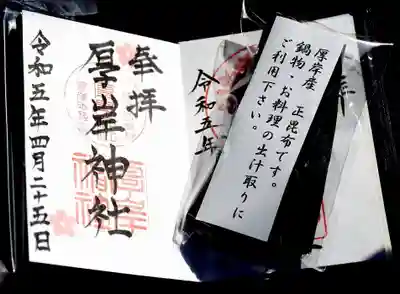 奉拝
厚岸神社
令和五年四月二十五日
厚岸産　正昆布です。
鍋物・お料理の出汁取りに
ご利用下さい。
拝
令和五年